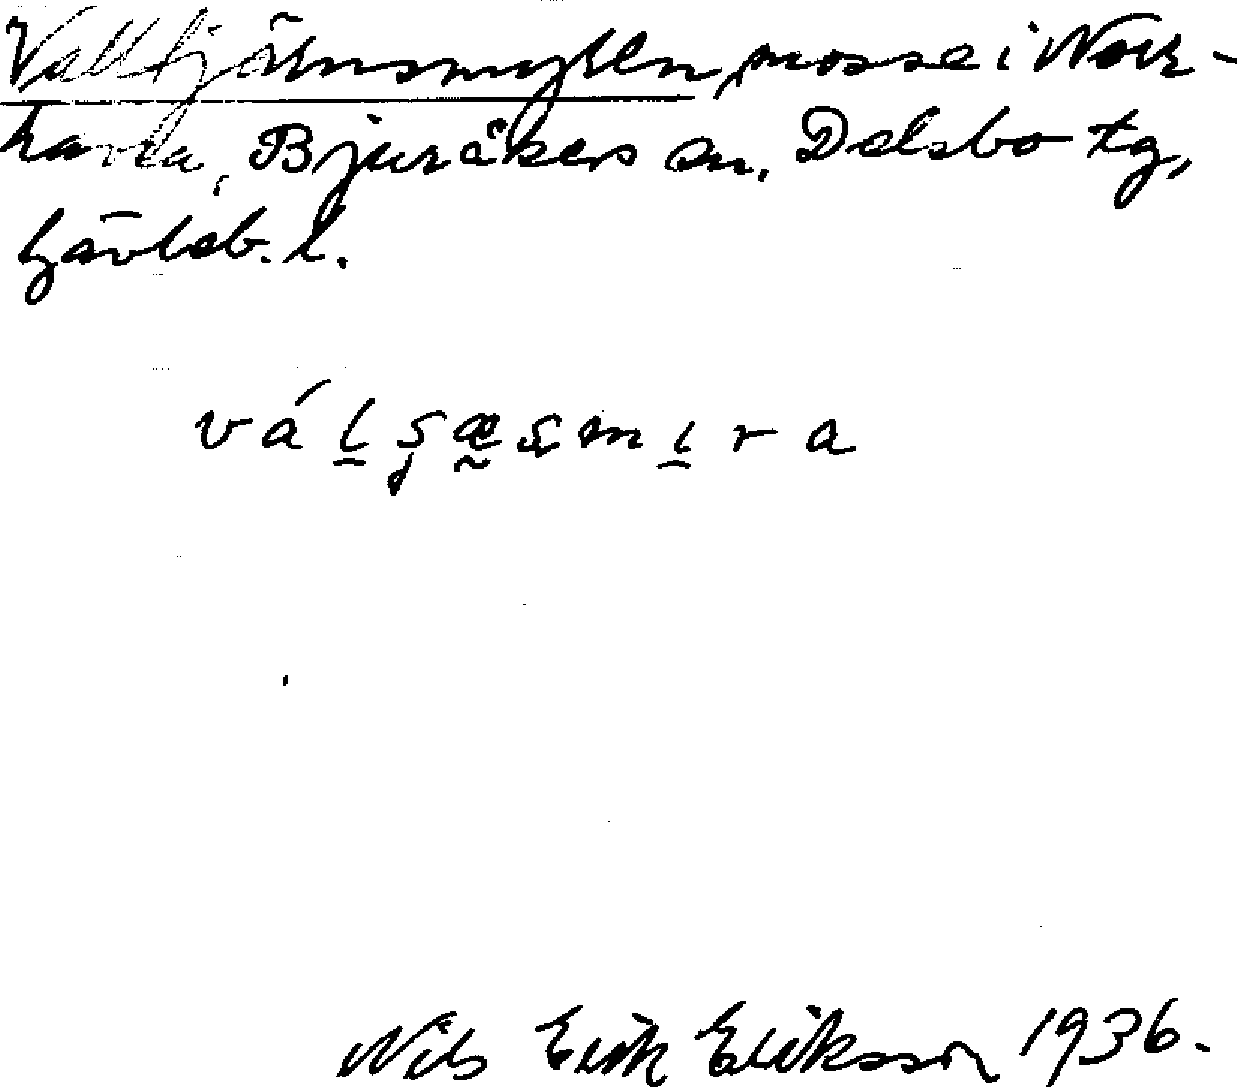 Valltjärnsmyren, mosse i Norr-
havra, Bjuråkers sn. Delsbo tg,
Gävleb. l.
Nils Erik Eriksson 1936.